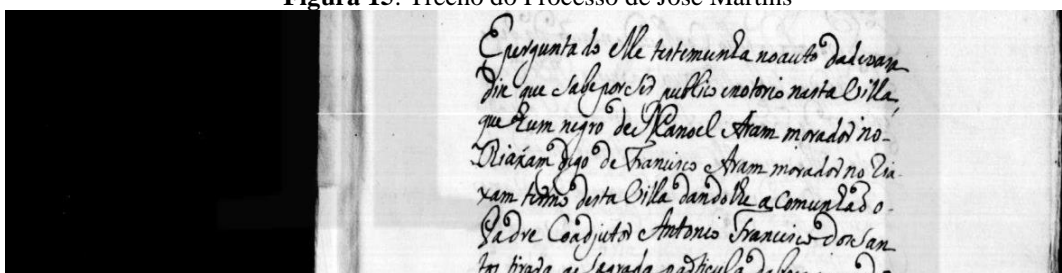 Figura 15: Trecho do Processo de José Martins
E perguntado elle testemunha no auto dadevaça
Dise que sabe por ser publico e notorio nesta Villa,
que hum negro de Manoel Aram morador no-
Riaxam digo de Francisco Aram morador no Ria-
xam termo desta Villa dandolhe a Comunhaõ o-
Padre Coadjutor Antonio Francisco dos San
tos tirada a sagrada particula da boca